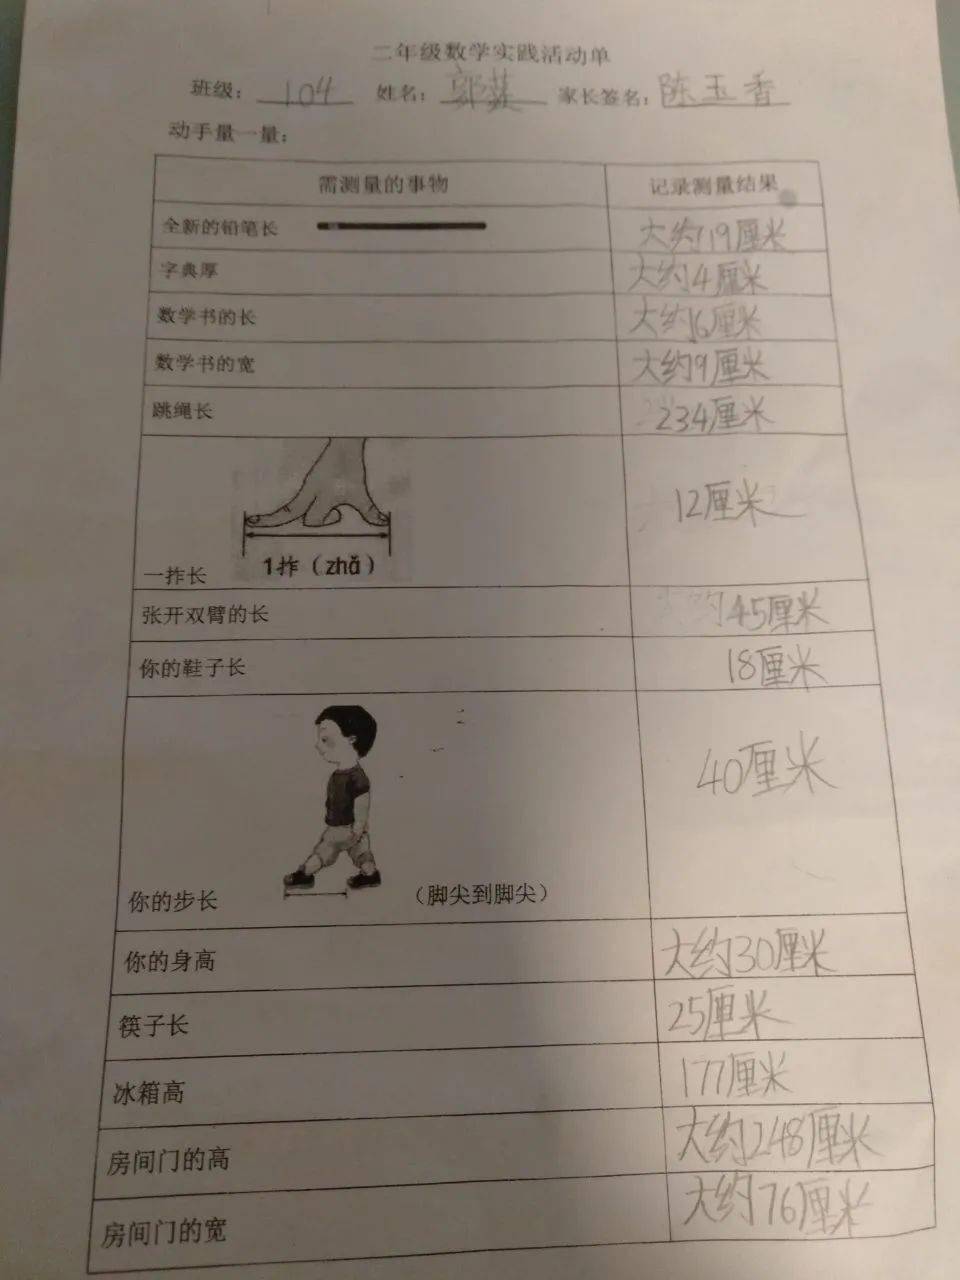 二年级数学实践活动单
班级：104 姓名：郭 家长签名：陈玉香
动手量一量：
需测量的事物 记录测量结果
全新的铅笔长 大约19厘米
字典厚 大约4厘米
数学书的长 大约6厘米
数学书的宽 大约9厘米
跳绳长 234厘米
12厘米
1拃（zhǎ）
一拃长
张开双臂的长 45厘米
你的鞋子长 18厘米
40厘米
你的步长 （脚尖到脚尖）
你的身高 大约30厘米
筷子长 25厘米
冰箱高 177厘米
房间门的高 大约248厘米
房间门的宽 大约76厘米